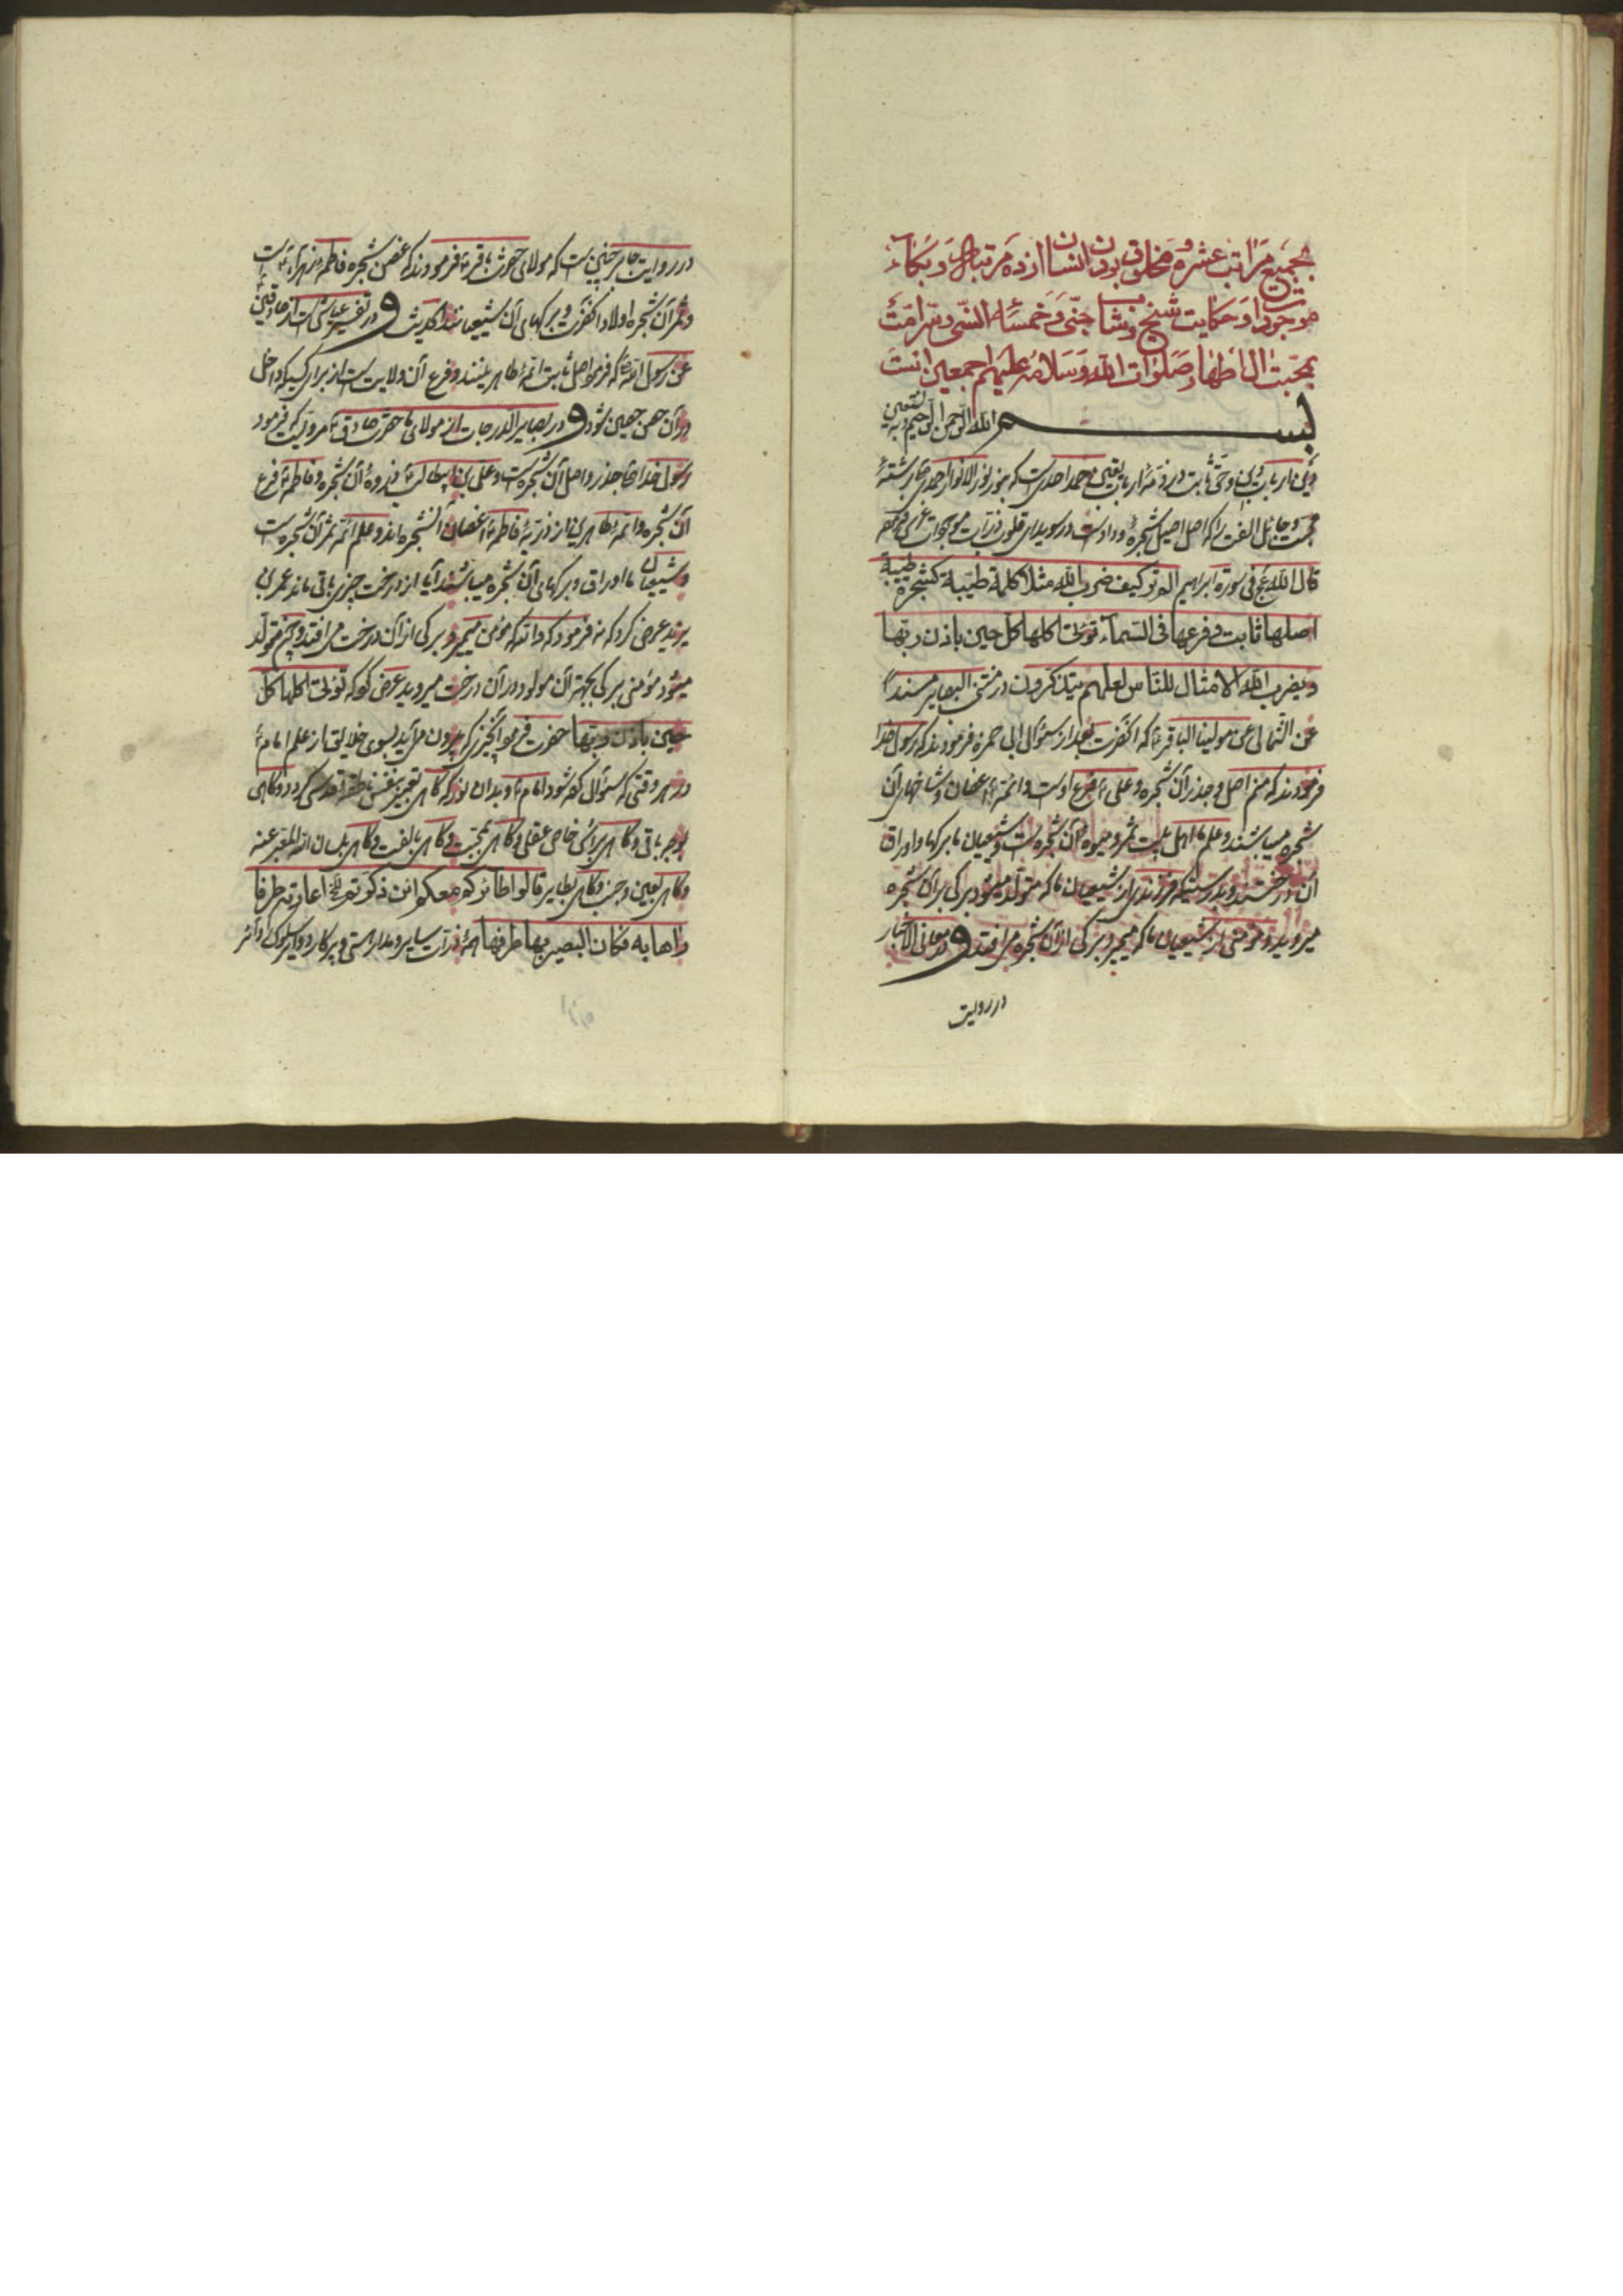 بجمیع مراتب عشره و مخلوق بودن انسان از ده مرتبه و بکاء
موجودات و حکایت شیخ جنّی و خمسهٔ النّبی و سرامت
بمحبّت آل اطهار صلوات الله و سلامه علیهم اجمعین است
بسم الله الرحمن الرحیم و به نستعین
محبّت و الفت را که اصل اصیل شجرهٔ وداد است در سویدای قلوب ذرّات موجودات
قال الله عج فی سورة ابراهیم الم تر کیف ضرب الله مثلا کلمة طیّبة کشجرة طیّبة
اصلها ثابت و فرعها فی السّمآء تؤتی اکلها کل حین باذن ربّها
و یضرب الله الامثال للنّاس لعلهم یتذکّرون در منتخب البصایر مسنداً
عن الثمالی عن مولینا الباقر ع که آنحضرت بعد از سئوال ابی حمزه فرمودند که رسول خدا
فرمودند که منم اصل و جذر آن شجره و علی ع فرع اوست و ائمّه ع اغصان و شاخهای آن
شجره میباشند و علم ما اهل بیت ثمر و میوه آن شجره است و شیعیان ما برکها و اوراق
آن درختند و بدرستیکه فرزندی از شیعیان ما که متولّد میشود برکی بر آن شجره
میروید و مؤمنی از شیعیان ما که میمیرد برکی از آن شجره می افتد و در معانی الاخبار
در روایت
در روایت جابر چنین است که مولای حضرت باقر ع فرمودند که غصن شجره فاطمه زهرآء ع است
و ثمر آن شجره اولاد آنحضرت و برکهای آن شیعیانند الحدیث و در تفسیر عیاشی است از صادقین
عن رسول الله ص که فرمود اصل ثابت ائمّهٔ طاهرینند و فرع آن ولایت است از برای کسیکه داخل
در آن شود و در بصایر الدرجات از مولای ما حضرت صادق ع مرویست که فرمود
رسول خدا ص جذر و اصل آن شجره است و علی بن ابیطالب ع ذروهٔ آن شجره و فاطمه ع فرع
آن شجره و ائمّه طاهرین از ذرّیّهٔ فاطمه ع اغصان آنشجره اند و علم ائمّه ثمر آن شجره است
و شیعیان ما اوراق و برکهای آن شجره میباشند آیا از درخت چیزی باقی ماند عمر بن
یزید عرض کرد که نه فرمود که والله که مؤمن میمیرد برکی از آن درخت می افتد و چون متولّد
میشود مؤمنی برکی بجهة آن مولود در آن درخت میروید عرض کرد که تؤتی اکلها کل
حین باذن ربّها حضرت فرمود آنچیزی که بیرون می آید بسوی خلایق از علم امام ع
در هر وقتی که سئوال کرده شود امام ع و بدان نور که کاهی تعبیر بنفس ناطقه قدسی کردد و کاهی
بوجه باقی و کاهی و کاهی بمحبّت و کاهی بالفت و کاهی المعبّر عنه
و کاهی بعین و کاهی بطایر قالوا طائرکم معکم ائن ذکّرتم اعارته طرفا
رآها به فکان البصیر بها طرفها همهٔ ذرّات سایر و مدار هستی و پرکار